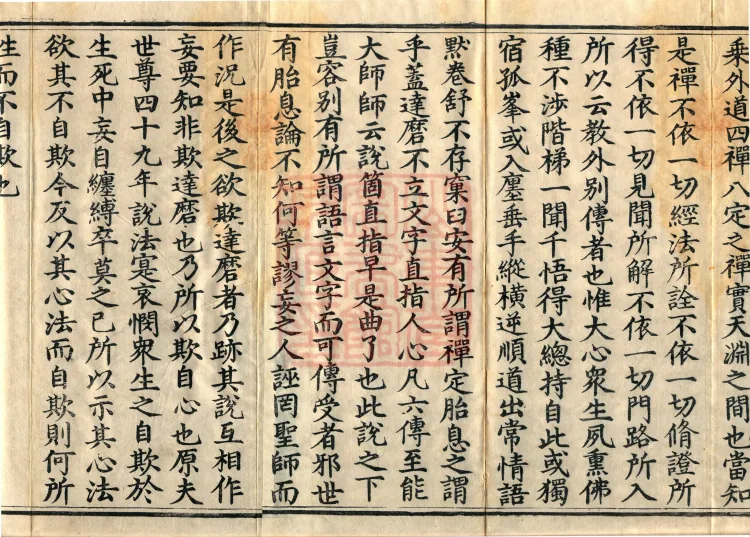 乗外道四禪八定之禪實天淵之間也當知
是禪不依一切經法所詮不依一切脩證所
得不依一切見聞所解不依一切門路所入
所以云教外别傳者也惟大心衆生夙熏佛
種不渉階梯一聞千悟得大總持自此或獨
宿孤峯或入鄽垂手縱横逆順道出常情語
黙卷舒不存窠臼安有所謂禪定胎息之謂
乎蓋達磨不立文字直指人心凡六傳至能
大師師云說箇直指早是曲了也此說之下
豈容别有所謂語言文字而可傳受者邪世
有胎息論不知何等謬妄之人誣罔聖師而
作况是後之欲欺達磨者乃跡其說互相作
妄要知非欺達磨也乃所以欺自心也原夫
世尊四十九年說法寔哀憫衆生之自欺於
生死中妄自纏縛卒莫之已所以示其心法
欲其不自欺今反以其心法而自欺則何所
生而不自欺也